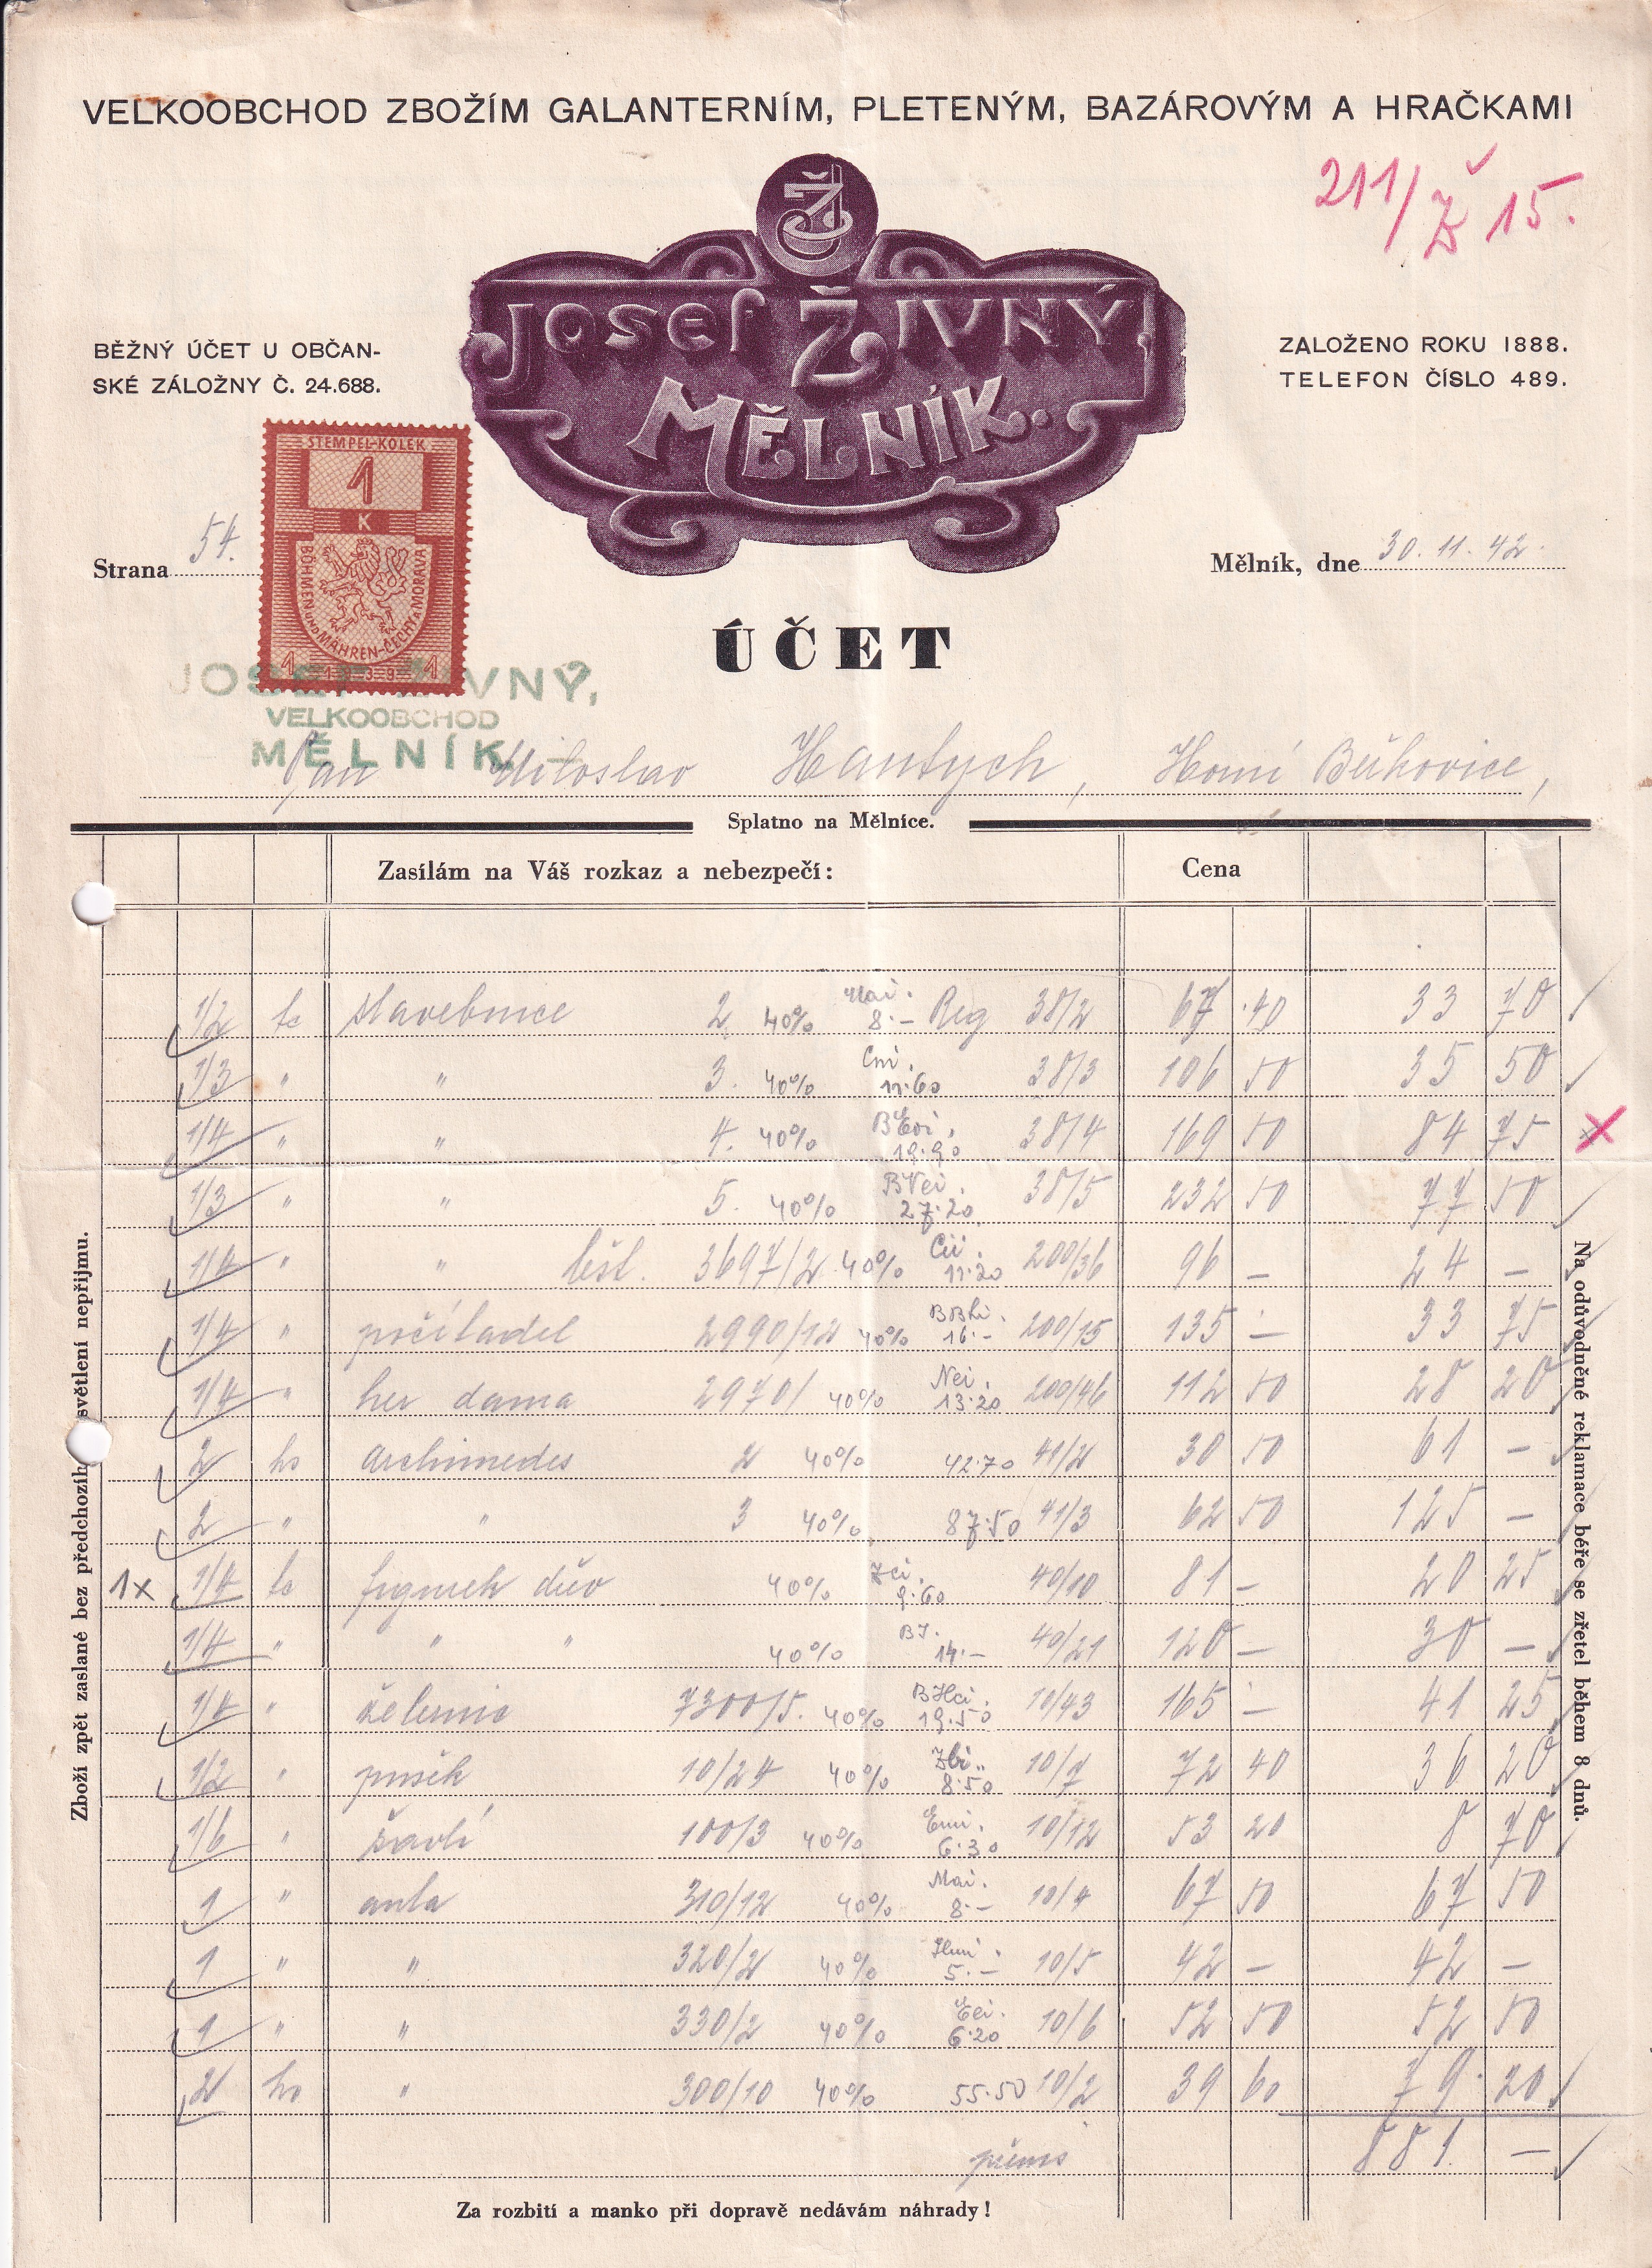 VELKOOBCHOD ZBOŽÍM GALANTERNÍM, PLETENÝM, BAZÁROVÝM A HRAČKAMI
211/Ž 15.
Ž
Josef Živný
Mělník..
BĚŽNÝ ÚČET U OBČAN-
SKÉ ZÁLOŽNY Č. 24.688.
ZALOŽENO ROKU 1888.
TELEFON ČÍSLO 489.
STEMPEL-KOLEK
1
K
BÖHMEN UND MÄHREN-ČECHY A MORAVA
1 1939 1
Strana 54.
Mělník, dne 30. 11. 42.
ÚČET
JOSEF ŽIVNÝ,
VELKOOBCHOD
MĚLNÍK
Pan Miloslav Hantych, Horní Beřkovice,
Splatno na Mělníce.
Zasílám na Váš rozkaz a nebezpečí: Cena
1/2 tc stavebnice 2 40% 8.- Reg 38/2 67 .40 33 70
1/3 " " 3. 40% 11.60 38/3 106 50 35 50
1/4 " " 4. 40% 19.90 38/4 169 50 84 75 x
1/3 " " 5. 40% 27.20 38/5 232 50 77 50
1/4 " " lešt. 3697/2 40% 11.20 200/36 96 — 24 —
1/4 " počítadel 2990/12 40% 16.- 200/15 135 — 33 75
1/4 " her dama 2970/ 40% 13.20 200/46 112 50 28 20
2 ks archimedes 2 40% 42.70 41/2 30 50 61 —
2 " " 3 40% 87.50 41/3 62 50 125 —
1x 1/4 tc figurek dřev 40% 9.60 40/10 81 — 20 25
1/4 " " " 40% 14.- 40/21 120 — 30 —
1/4 " 7300/5. 40% 19.50 10/43 165 — 41 25
1/2 " pušek 10/24 40% 8.50 10/7 72 40 36 20
1/6 " šavlí 100/3 40% 6.30 10/12 53 20 8 70
1 " auta 310/12 40% 8.- 10/4 67 50 67 50
1 " " 320/2 40% 5.- 10/5 42 — 42 —
1 " " 330/2 40% 6.20 10/6 52 50 52 50
2 ks " 300/10 40% 55.50 10/2 39 60 79.20
přenos 881. —
Za rozbití a manko při dopravě nedávám náhrady!
Zboží zpět zaslané bez předchozíh světlení nepřijmu.
Na odůvodněné reklamace béře se zřetel během 8 dnů.